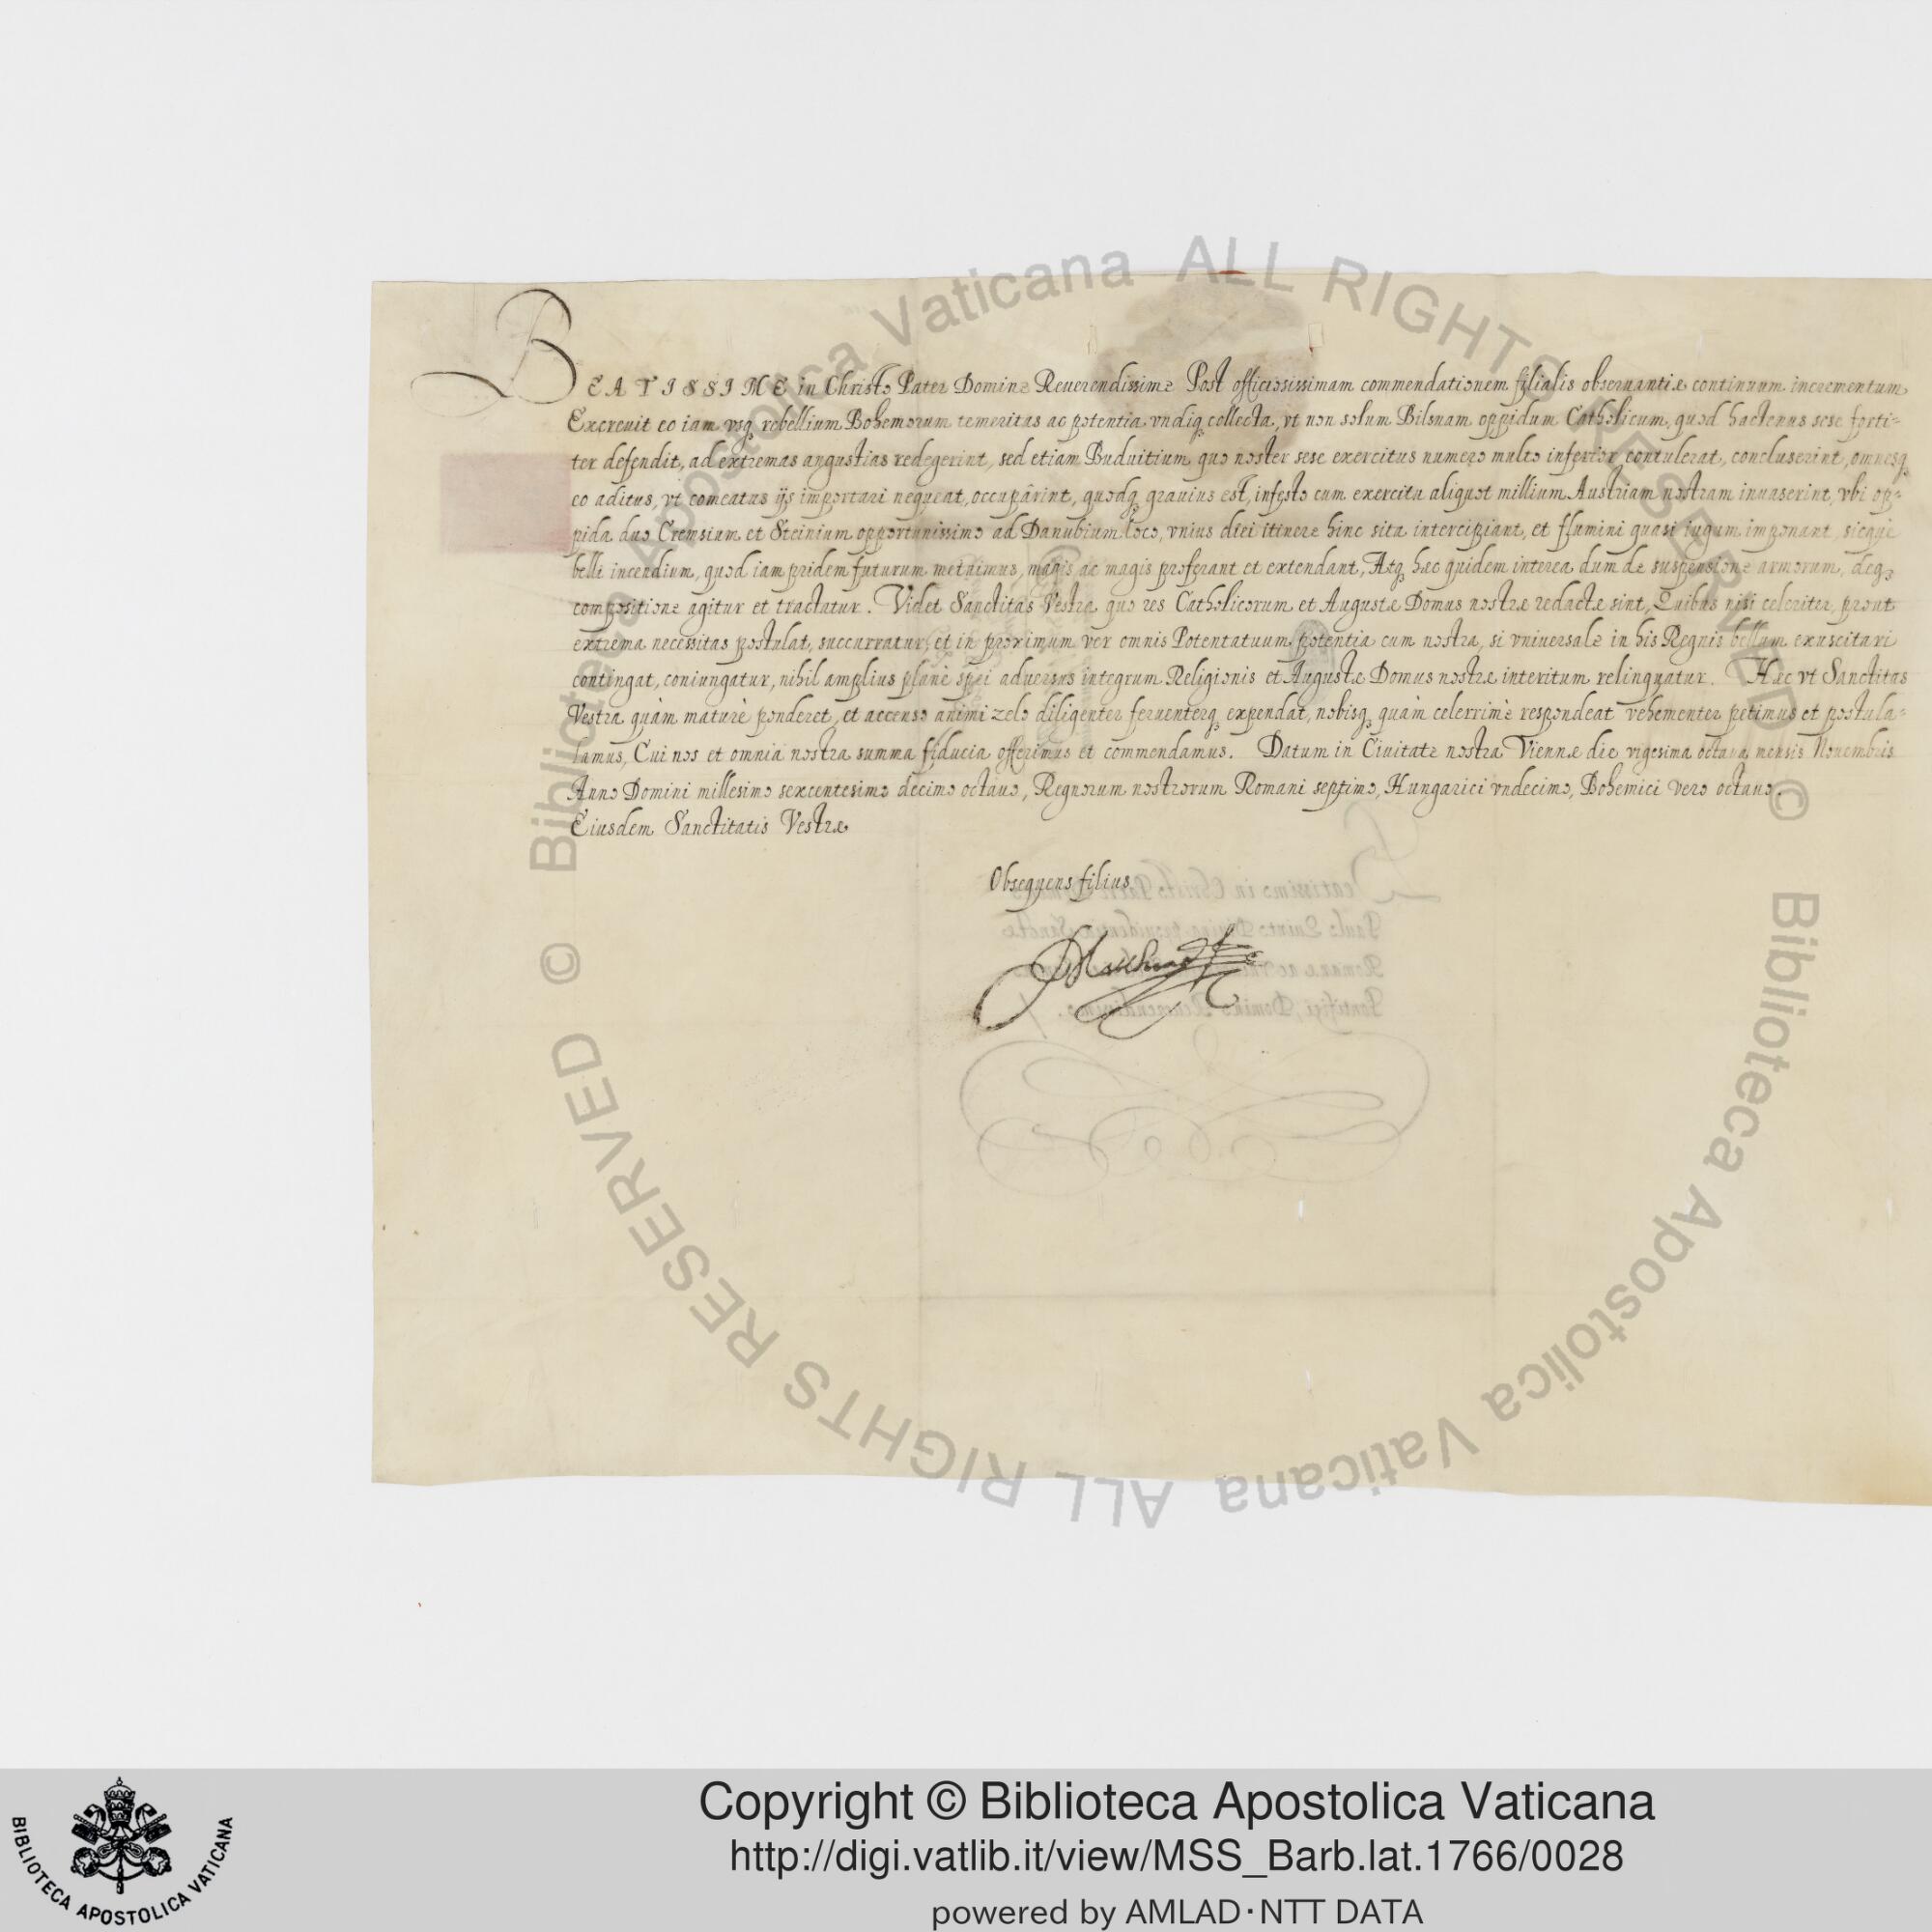 BEATISSIME in Christo Pater Domine Reuerendissime Post officiosissimam commendationem filialis obseruantiæ continuum incrementum
Excreuit eo iam vsq rebellium Bohemorum temeritas ac potentia vndiq collecta, vt non solum Bilsnam oppidum Catholicum, quod hactenus sese forti-
ter defendit, ad extremas angustias redegerint, sed etiam Buduitium quo noster sese exercitus numero multo inferior contulerat, concluserint, omnesq
eo aditus, vt comeatus ijs importari nequeat, occupârint, quodq grauius est, infesto cum exercitu aliquot millium Austriam nostram inuaserint, vbi op-
pida duo Cremsium et Steinium opportunissimo ad Danubium loco, vnius diei itinere hinc sita intercipiant, et flumini quasi iugum imponant, sicque
belli incendium, quod iam pridem futurum metuimus, magis ac magis proferant et extendant, Atq hæc quidem interea dum de suspensione armorum, deq
compositione agitur et tractatur. Videt Sanctitas Vestra quo res Catholicorum et Augustæ Domus nostræ redactæ sint, Quibus nisi celeriter, prout
extrema necessitas postulat, succurratur, et in proximum ver omnis Potentatuum potentia cum nostra, si vniuersale in his Regnis bellum exuscitari
contingat, coniungatur, nihil amplius planè spei aduersus integrum Religionis et Augustæ Domus nostræ interitum relinquatur. Hæc vt Sanctitas
Vestra quàm maturè ponderet, et accenso animi zelo diligenter feruenterq expendat, nobisq quàm celerrimè respondeat vehementer petimus et postula-
lamus, Cui nos et omnia nostra summa fiducia offerimus et commendamus. Datum in Ciuitate nostra Viennæ die vigesima octaua mensis Nouembris
Anno Domini millesimo sexcentesimo decimo octauo, Regnorum nostrorum Romani septimo, Hungarici vndecimo, Bohemici vero octauo.
Eiusdem Sanctitatis Vestræ
Obsequens filius
Matthias
© Biblioteca Apostolica Vaticana ALL RIGHTS RESERVED © Biblioteca Apostolica Vaticana ALL RIGHTS RESERVED
BIBLIOTECA APOSTOLICA VATICANA
Copyright © Biblioteca Apostolica Vaticana
http://digi.vatlib.it/view/MSS_Barb.lat.1766/0028
powered by AMLAD·NTT DATA